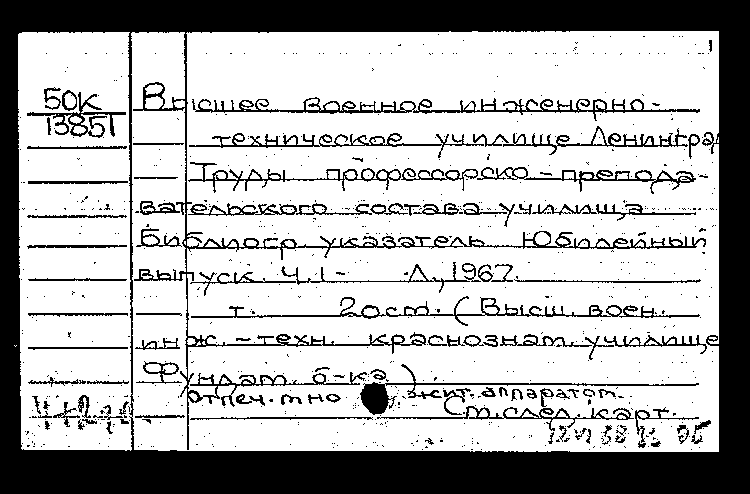 50К
13851
Высшее военное инженерно-
техническое училище. Ленинград
Труды профессорско-препода-
вательского состава училища.
Библиогр. указатель. Юбилейный
выпуск. Ч.1- Л., 1967.
т. 20см. (Высш. воен.
инж.-техн. краснознам. училище
Фундам. б-ка)
отпеч. мно жит. аппаратом.
(см. след. карт.